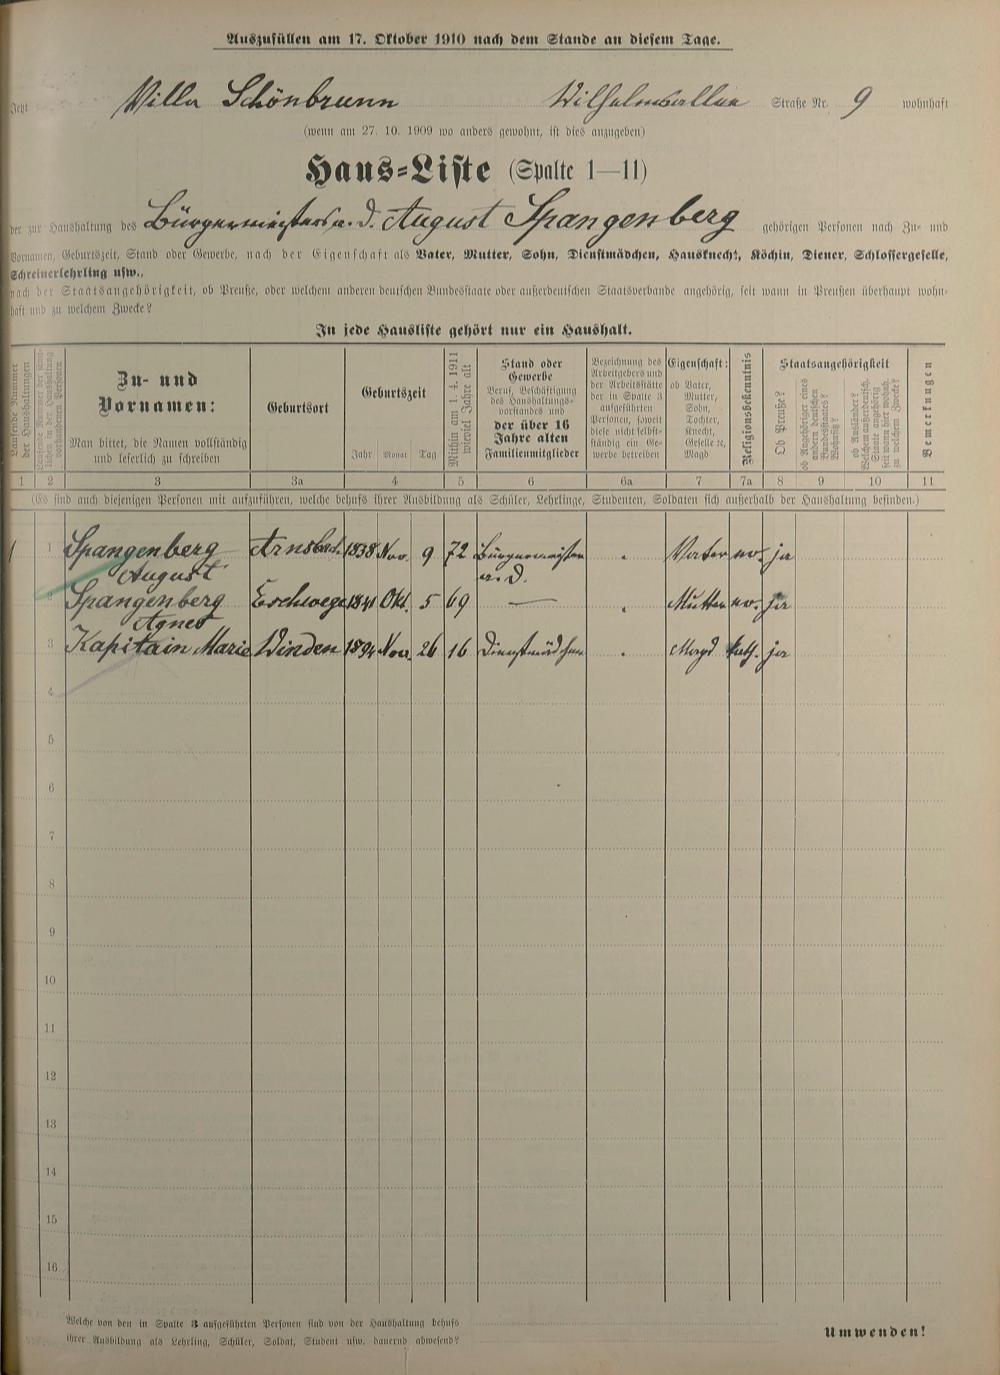 Auszufüllen am 17. Oktober 1910 nach dem Stande an diesem Tage.
Jetzt Villa Schönbrunn Wilhelmsallee Straße Nr. 9 wohnhaft
(wenn am 27. 10. 1909 wo anders gewohnt, ist dies anzugeben)
Haus-Liste (Spalte 1—11)
der zur Haushaltung des Bürgermeisters a. D. August Spangenberg gehörigen Personen nach Zu- und
Vornamen, Geburtszeit, Stand oder Gewerbe, nach der Eigenschaft als Vater, Mutter, Sohn, Dienstmädchen, Hausknecht, Köchin, Diener, Schlossergeselle,
Schreinerlehrling usw.,
nach der Staatsangehörigkeit, ob Preuße, oder welchem anderen deutschen Bundesstaate oder außerdeutschen Staatsverbande angehörig, seit wann in Preußen überhaupt wohn-
haft und zu welchem Zwecke?
In jede Hausliste gehört nur ein Haushalt.
Laufende Nummer
der Haushaltungen
Laufende Nummer der sämt-
lichen in der Haushaltung
vorhandenen Personen
Zu- und
Vornamen:
Man bittet, die Namen vollständig
und leserlich zu schreiben
Geburtsort
Geburtszeit
Jahr Monat Tag
Mithin am 1. 4. 1911
wieviel Jahre alt
Stand oder
Gewerbe
Beruf, Beschäftigung
des Haushaltungs-
vorstandes und
der über 16
Jahre alten
Familienmitglieder
Bezeichnung des
Arbeitgebers und
der Arbeitsstätte
der in Spalte 3
aufgeführten
Personen, soweit
diese nicht selbst-
ständig ein Ge-
werbe betreiben
Eigenschaft:
ob Vater,
Mutter,
Sohn,
Tochter,
Knecht,
Geselle ꝛc,
Magd
Religionsbekenntnis
Staatsangehörigkeit
Ob Preuße?
ob Angehöriger eines
andern deutschen
Bundesstaates?
Wohnsitz?
ob Ausländer?
Welchem außerdeutsch.
Staate angehörig
seit wann hier wohnh.
zu welchem Zwecke?
Bemerkungen
1 2 3 3a 4 5 6 6a 7 7a 8 9 10 11
(Es sind auch diejenigen Personen mit aufzuführen, welche behufs ihrer Ausbildung als Schüler, Lehrlinge, Studenten, Soldaten sich außerhalb der Haushaltung befinden.)
1 1 Spangenberg 1838 Nov. 9 72 Bürgermeister Vater ev. ja
August a. D.
2 Spangenberg Eschwege 1841 Okt. 5 69 — Mutter ev. ja
Agnes
3 Kapitain Marie Winden 1894 Nov. 26 16 Dienstmädchen Magd kath. ja
4
5
6
7
8
9
10
11
12
13
14
15
16
Welche von den in Spalte 3 aufgeführten Personen sind von der Haushaltung behufs
ihrer Ausbildung als Lehrling, Schüler, Soldat, Student usw. dauernd abwesend?
Umwenden!